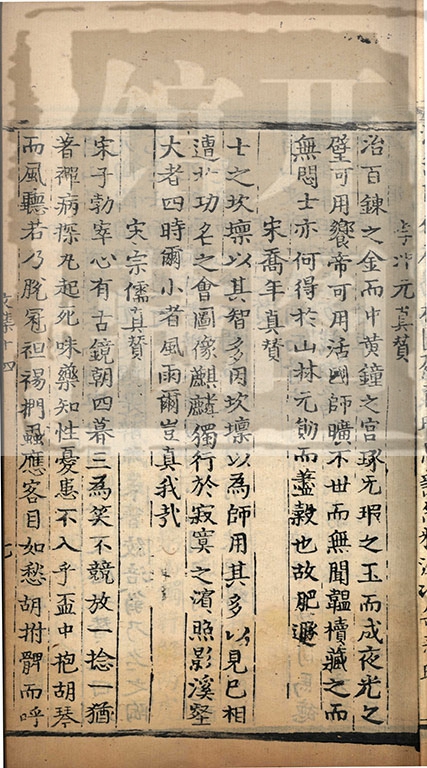 李冲元真贊
冶百鍊之金而中黄鐘之宫琢无瑕之玉而成夜光之
璧可用饗帝可用活國師曠不世而無聞韞櫝藏之而
無悶士亦何得於山林元則而蠹穀也故肥遯
宋喬年真贊
士之坎壈以其智多因坎壈以為師用其多以見已相
遭於功名之會圖像麒麟獨行於寂寞之濱照影溪壑
大老四時爾小者風雨爾豈真我哉
宋宗儒真贊
宋子勃窣心有古鏡朝四暮三為笑不競放一捻一猶
著禪病探丸起死味藥知性憂患不入乎盃中抱胡琴
而風聽若乃脫冠袒裼捫蝨應客目如愁胡拊髀而呼
文集十四
七